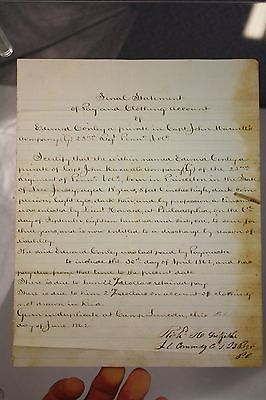 Final Statement
of Pay and Clothing Account
of
Edward Conley a private in Capt John
Company (G) 23rd Regt Penna Vols
I certify that the within named Edward Conley a
private of Capt John Company (G) of the 23rd
regiment of Penna Vols born in the State of
New Jersey aged 18 years, 5 feet inches high, dark com-
plexion eyes, dark hair and by profession a
was enlisted by at Philadelphia, on the
day of September eighteen hundred and to serve for
three years, and is now entitled to a discharge by reason of
disability.
The said Edward Conley was last paid by Paymaster
to include the 30th day of April 1862, and has
pay due from that time to the present date
There is due to him dollars retained pay.
There is due to him dollars on account of clothing
not drawn in kind.
Given in duplicate at Camp Lincoln, this
day of June 1862.